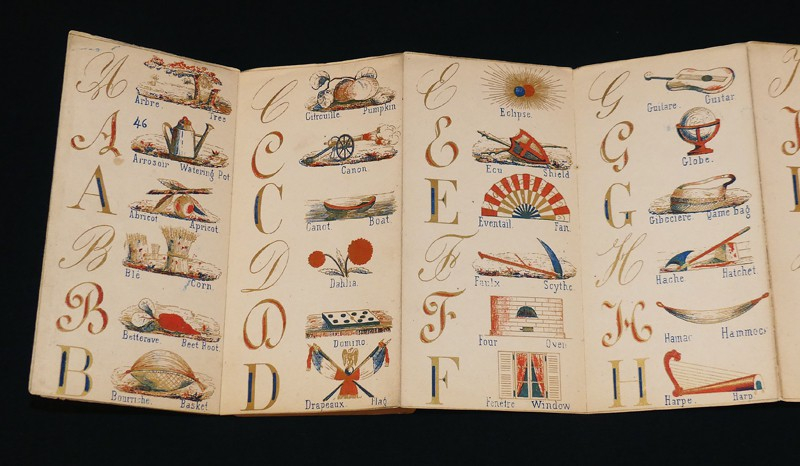 A
Arbre Tree
46
A
Arrosoir Watering Pot
A
Abricot Apricot
B
Blé Corn.
B
Betterave. Beet Root.
B
Bourriche. Basket
C
Citrouille. Pumpkin
C
Canon.
C
Canot. Boat
D
Dahlia.
D
Domino
D
Drapeaux Flag.
E
Eclipse
E
Ecu Shield
E
Eventail. Fan.
F
Faulx Scythe
F
Four Oven
F
Fenetre Window
G
Guitare. Guitar
G
Globe.
G
Gibeciere Game bag
H
Hache Hatchet.
H
Hamac Hammock
H
Harpe. Harp